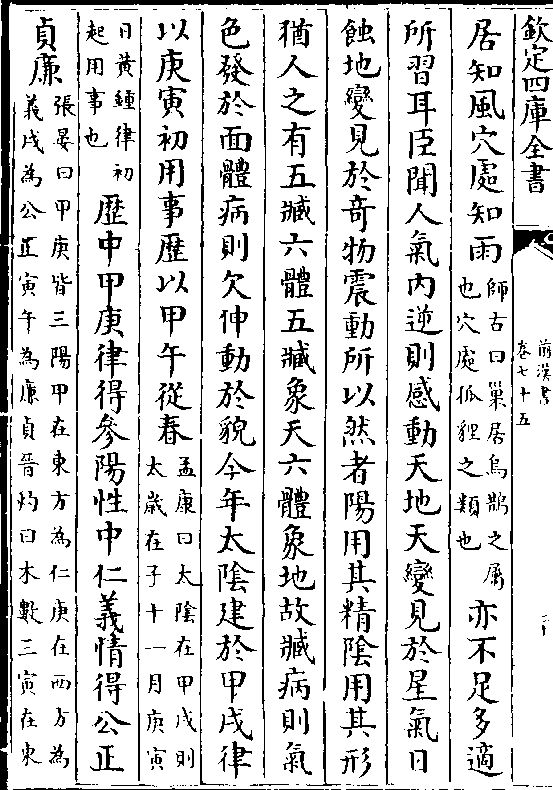 欽定四庫全書
前漢書
卷七十五
居知風穴處知雨師古曰巢居烏鵲之屬也穴處狐狸之類也亦不足多適
所習耳臣聞人氣內逆則感動天地天變見於星氣日
蝕地變見於奇物震動所以然者陽用其精陰用其形
猶人之有五臟六體五臟象天六體象地故臟病則氣
色發於面體病則欠伸動於貌今年太陰建於甲戌律
以庚寅初用事歴以甲午從春孟康曰太陰在甲戌則太歲在子十一月庚寅
日黃鍾律初起用事也歴中甲庚律得參陽性中仁義情得公正
貞廉張晏曰甲庚皆三陽甲在東方為仁庚在西方為義戌為公正寅午為廉貞晉灼曰木數三寅在東